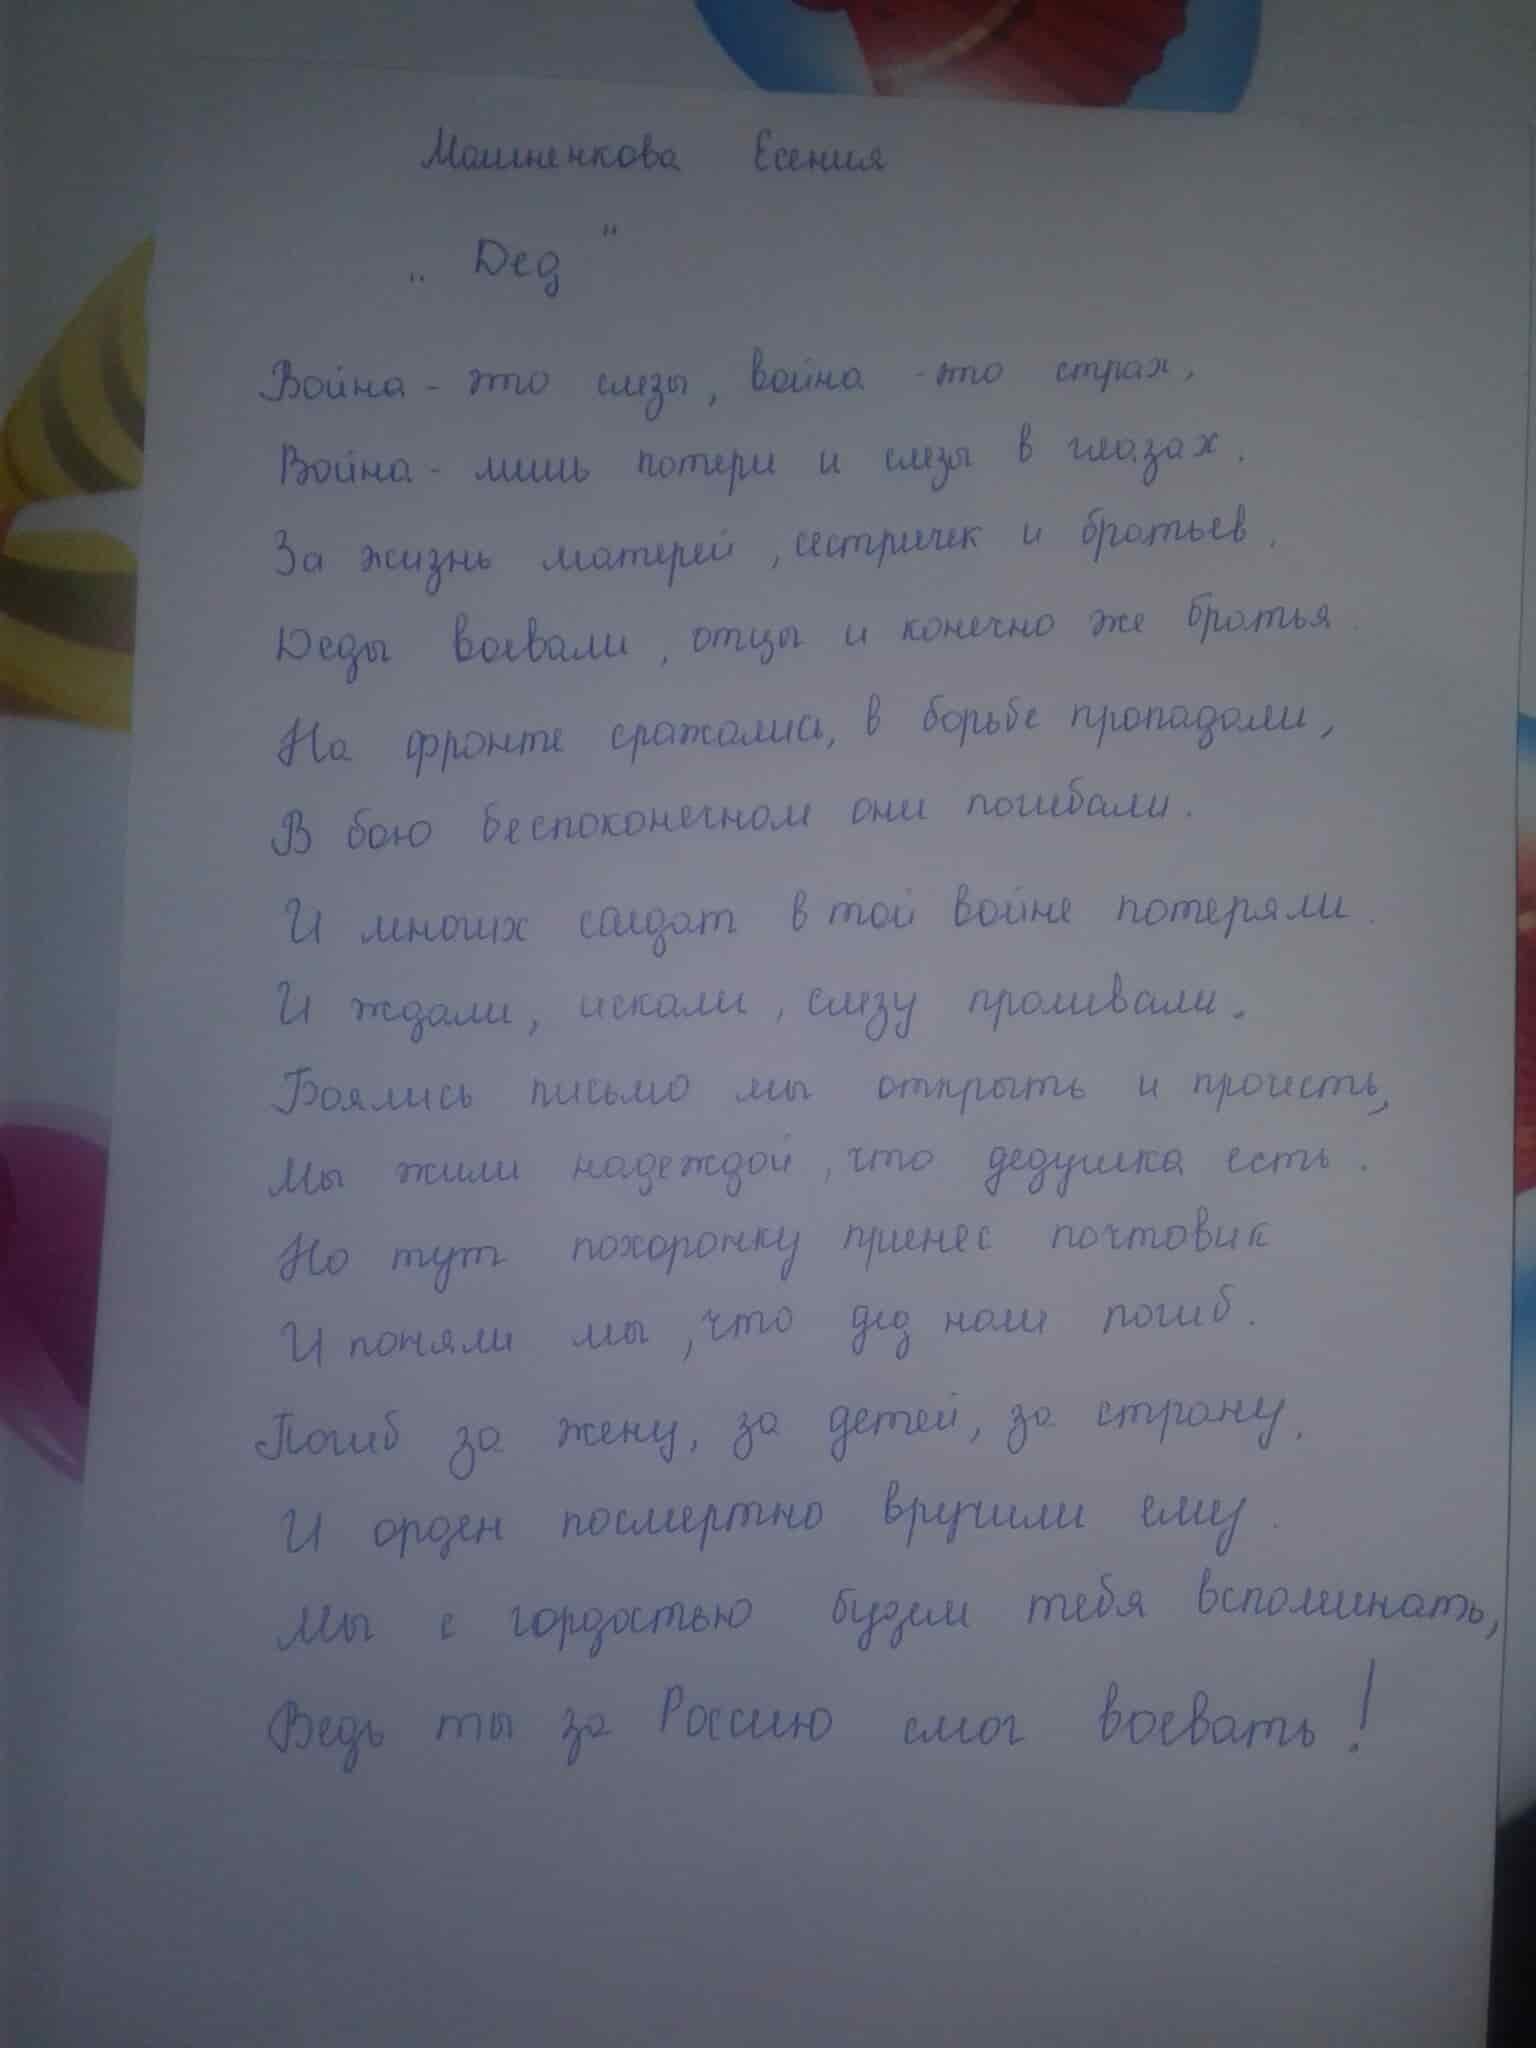 Машненкова Есения
„ Дед "
Война - это слезы, война - это страх,
Война - лишь потери и слезы в глазах.
За жизнь матерей, сестричек и братьев,
Деды воевали, отцы и конечно же братья.
На фронте сражались, в борьбе пропадали,
В бою беспоконечном они погибали.
И многих солдат в той войне потеряли.
И ждали, искали, слезу проливали.
Боялись письмо мы открыть и прочесть,
Мы жили надеждой, что дедушка есть.
Но тут похоронку принес почтовик
И поняли мы, что дед наш погиб.
Погиб за жену, за детей, за страну,
И орден посмертно вручили ему.
Мы с гордостью будем тебя вспоминать,
Ведь ты за Россию смог воевать!